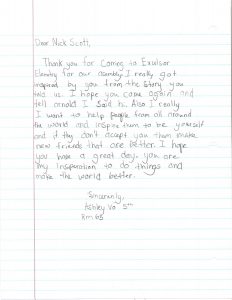 Dear Nick Scott,
Thank you for Coming to Excelsior
Elemtry for our asembly. I really got
inspired by you from the story you
told us. I hope you come again and
tell arnold I said hi. Also I really
want to help people from all around
the world and inspire them to be yourself
and if they don't accept you then make
new friends that are better. I hope
you have a great day. you are
my insperation to do things and
make the world better.
Sincerely,
Ashley Vo 5th
Rm 65